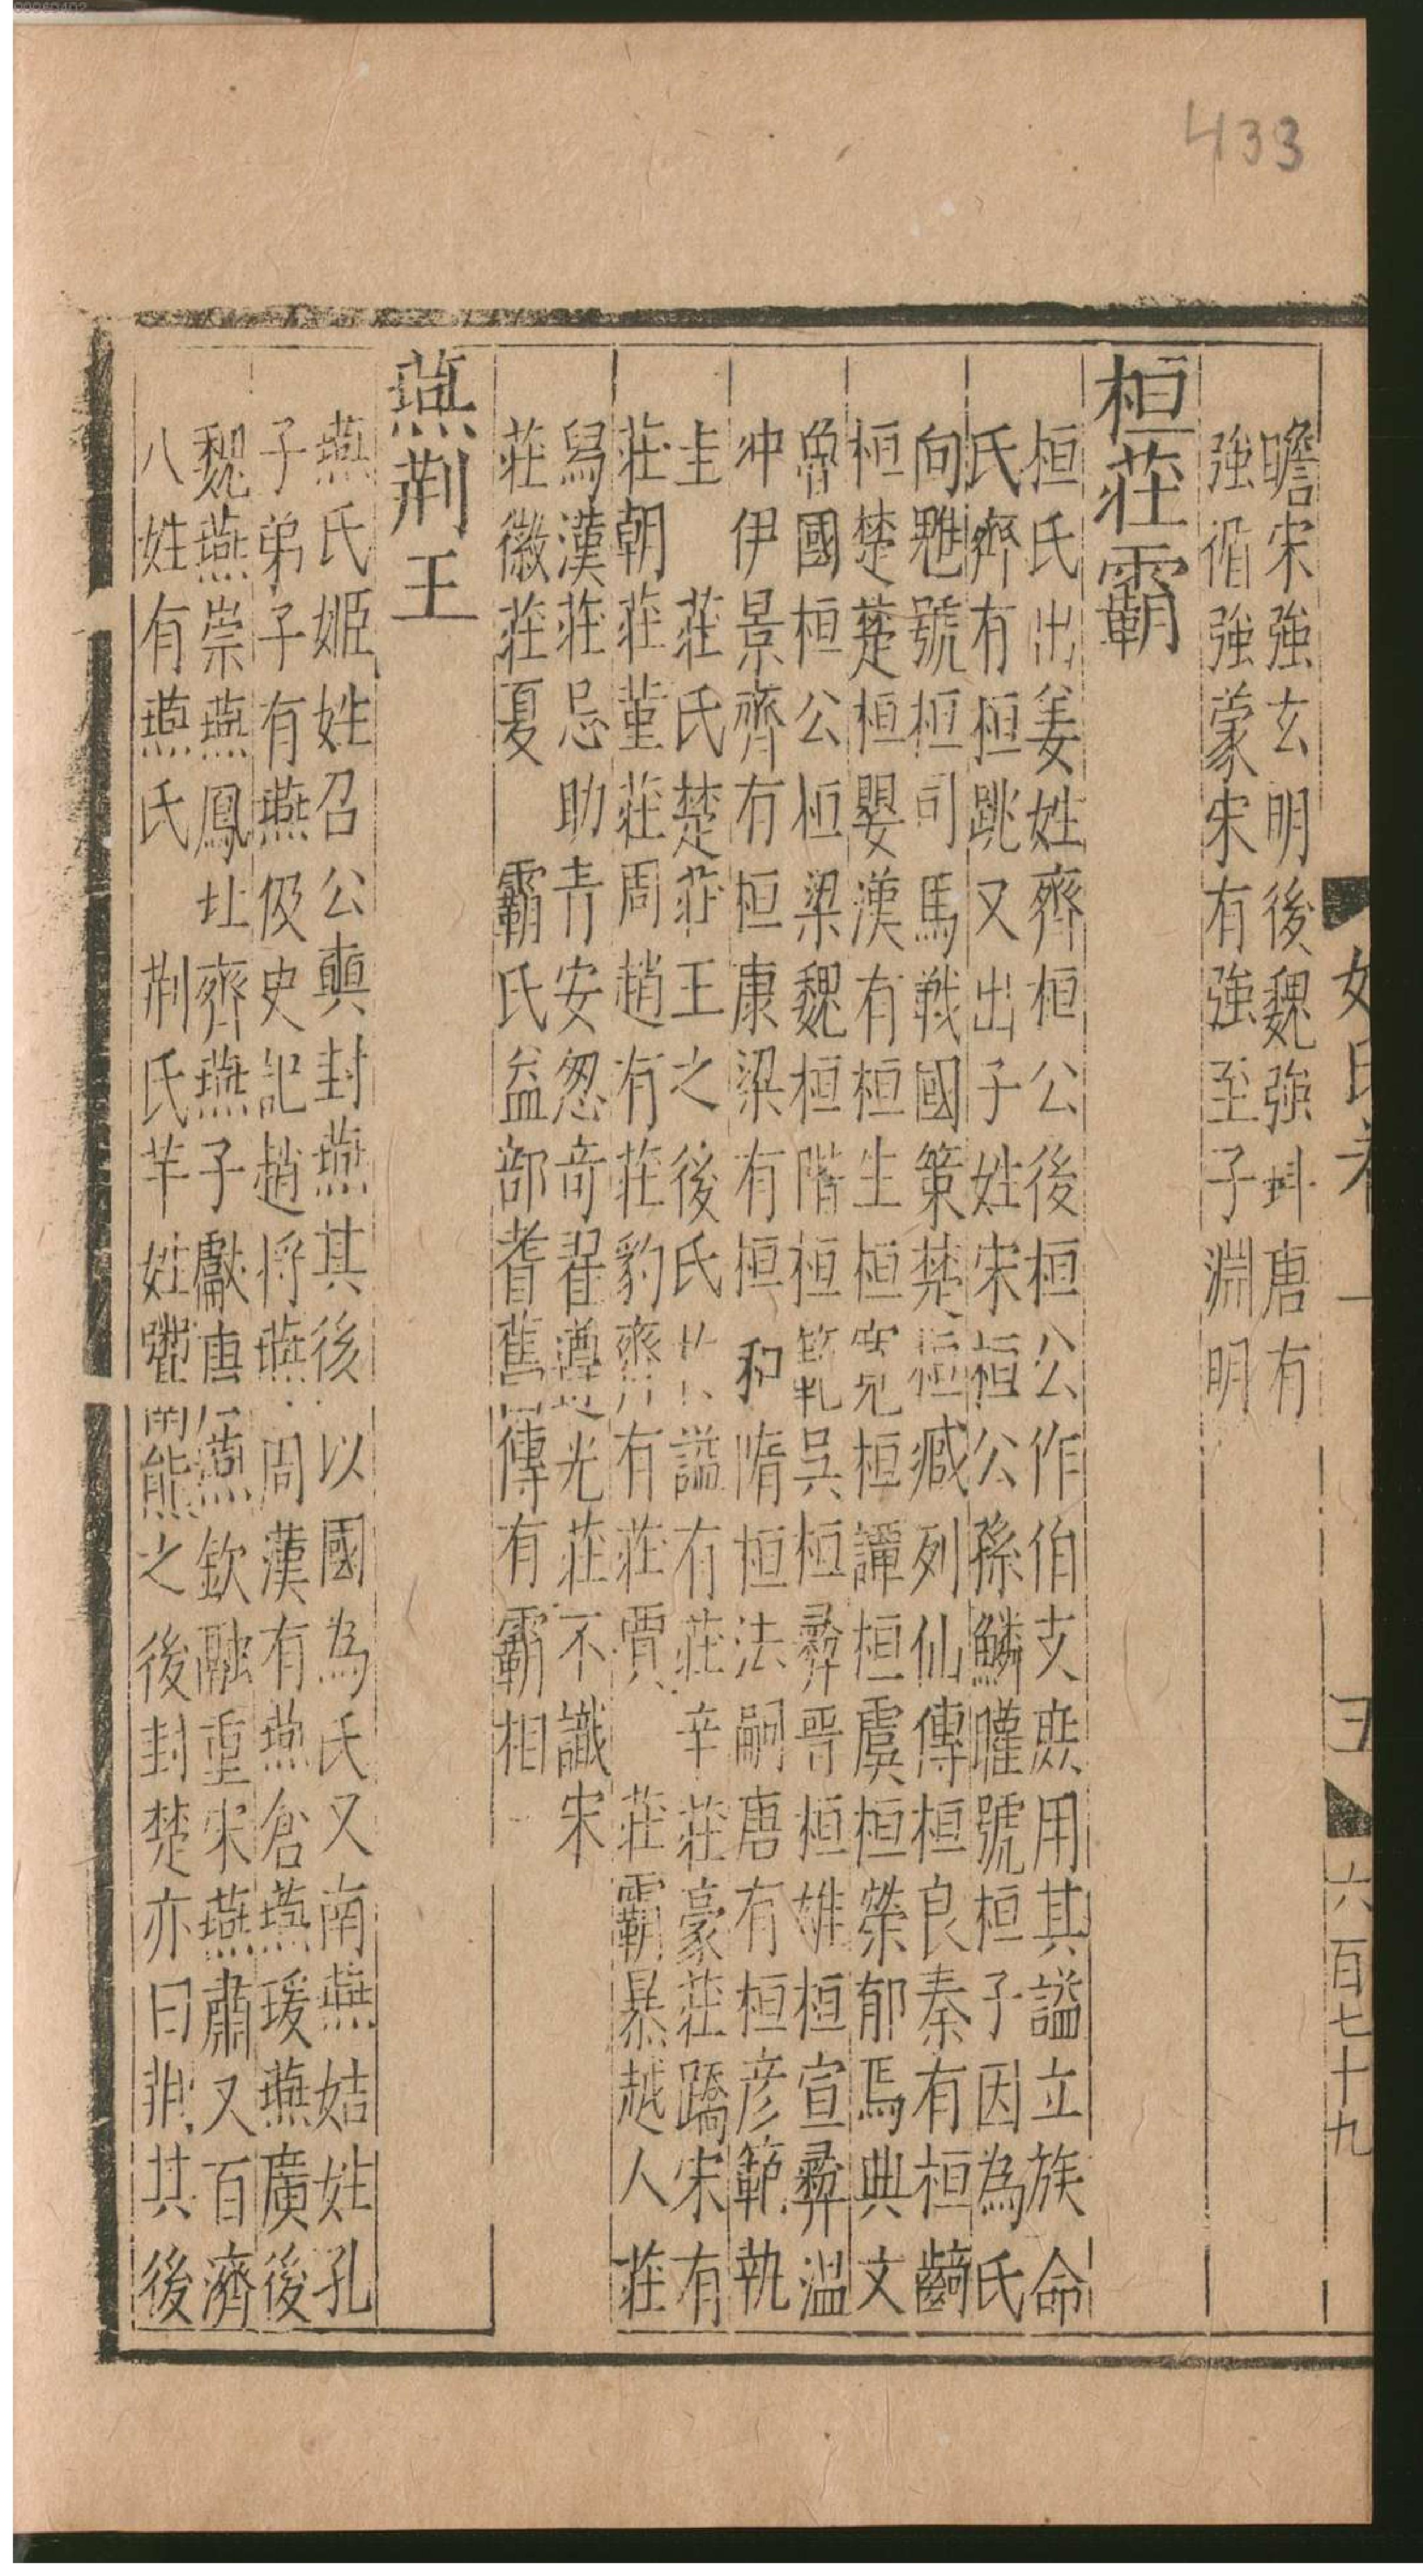 433
瞻宋強玄明後魏強斗唐有
強循強蒙宋有強至子淵明
桓莊霸
桓氏出姜姓齊桓公後桓公作伯支庶用其謚立族命
氏齊有桓跳又出子姓宋桓公孫鱗矔號桓子因為氏
向魋號桓司馬戰國策楚桓臧列仙傳桓良秦有桓齮
桓楚楚桓嬰漢有桓生桓寬桓譚桓虞桓榮郁焉典文
魯國桓公桓梁魏桓階桓範吳桓彝晉桓雄桓宣彝温
沖伊景齊有桓康梁有桓和隋桓法嗣唐有桓彥範執
圭 莊氏楚莊王之後氏其謚有莊辛莊豪莊蹻宋有
莊朝莊莊堇莊周趙有莊豹齊有莊賈 莊霸暴越人莊
舄漢莊忌助青安怱奇翟遵光莊不識宋
莊徽莊夏 霸氏益部耆舊傳有霸相
燕荆王
燕氏姬姓召公奭封燕其後以國為氏又南燕姞姓孔
子弟子有燕伋史記趙將燕周漢有燕倉燕瑗燕廣後
魏燕崇燕鳳北齊燕子獻唐燕欽融重宋燕肅又百濟
八姓有燕氏 荆氏芊姓鬻熊之後封楚亦曰荆其後
姓氏卷一
六百七十九